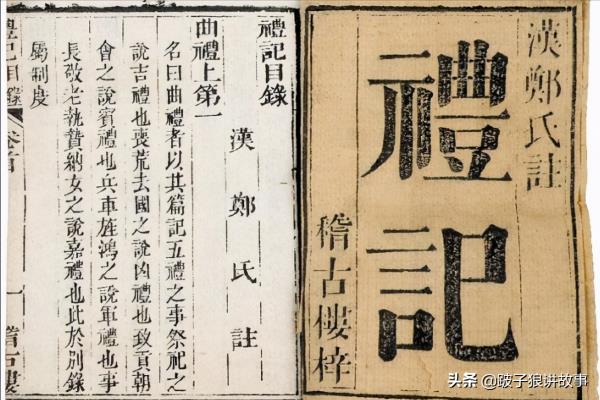 漢鄭氏註
禮記
稽古樓梓
禮記目錄
漢鄭氏註
曲禮上第一
名曰曲禮者以其篇記五禮之事祭祀之
說吉禮也喪荒去國之說凶禮也致貢朝
會之說賓禮也兵車旌鴻之說軍禮也事
長敬老執贄納女之說嘉禮也此於別錄
屬制度
禮記目錄
卷首
一
稽古樓
头条 @跛子狼讲故事